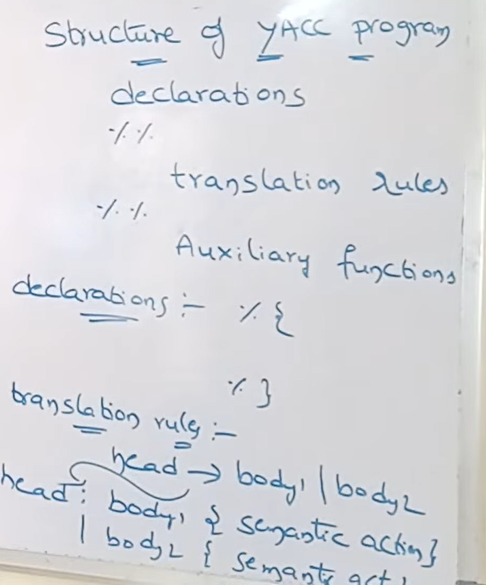 Structure of YACC program
declarations
%%
translation rules
%%
Auxiliary functions
declarations :- %{
%}
translation rules :-
head → body1 | body2
head : body1 { semantic action}
| body2 { semantic act